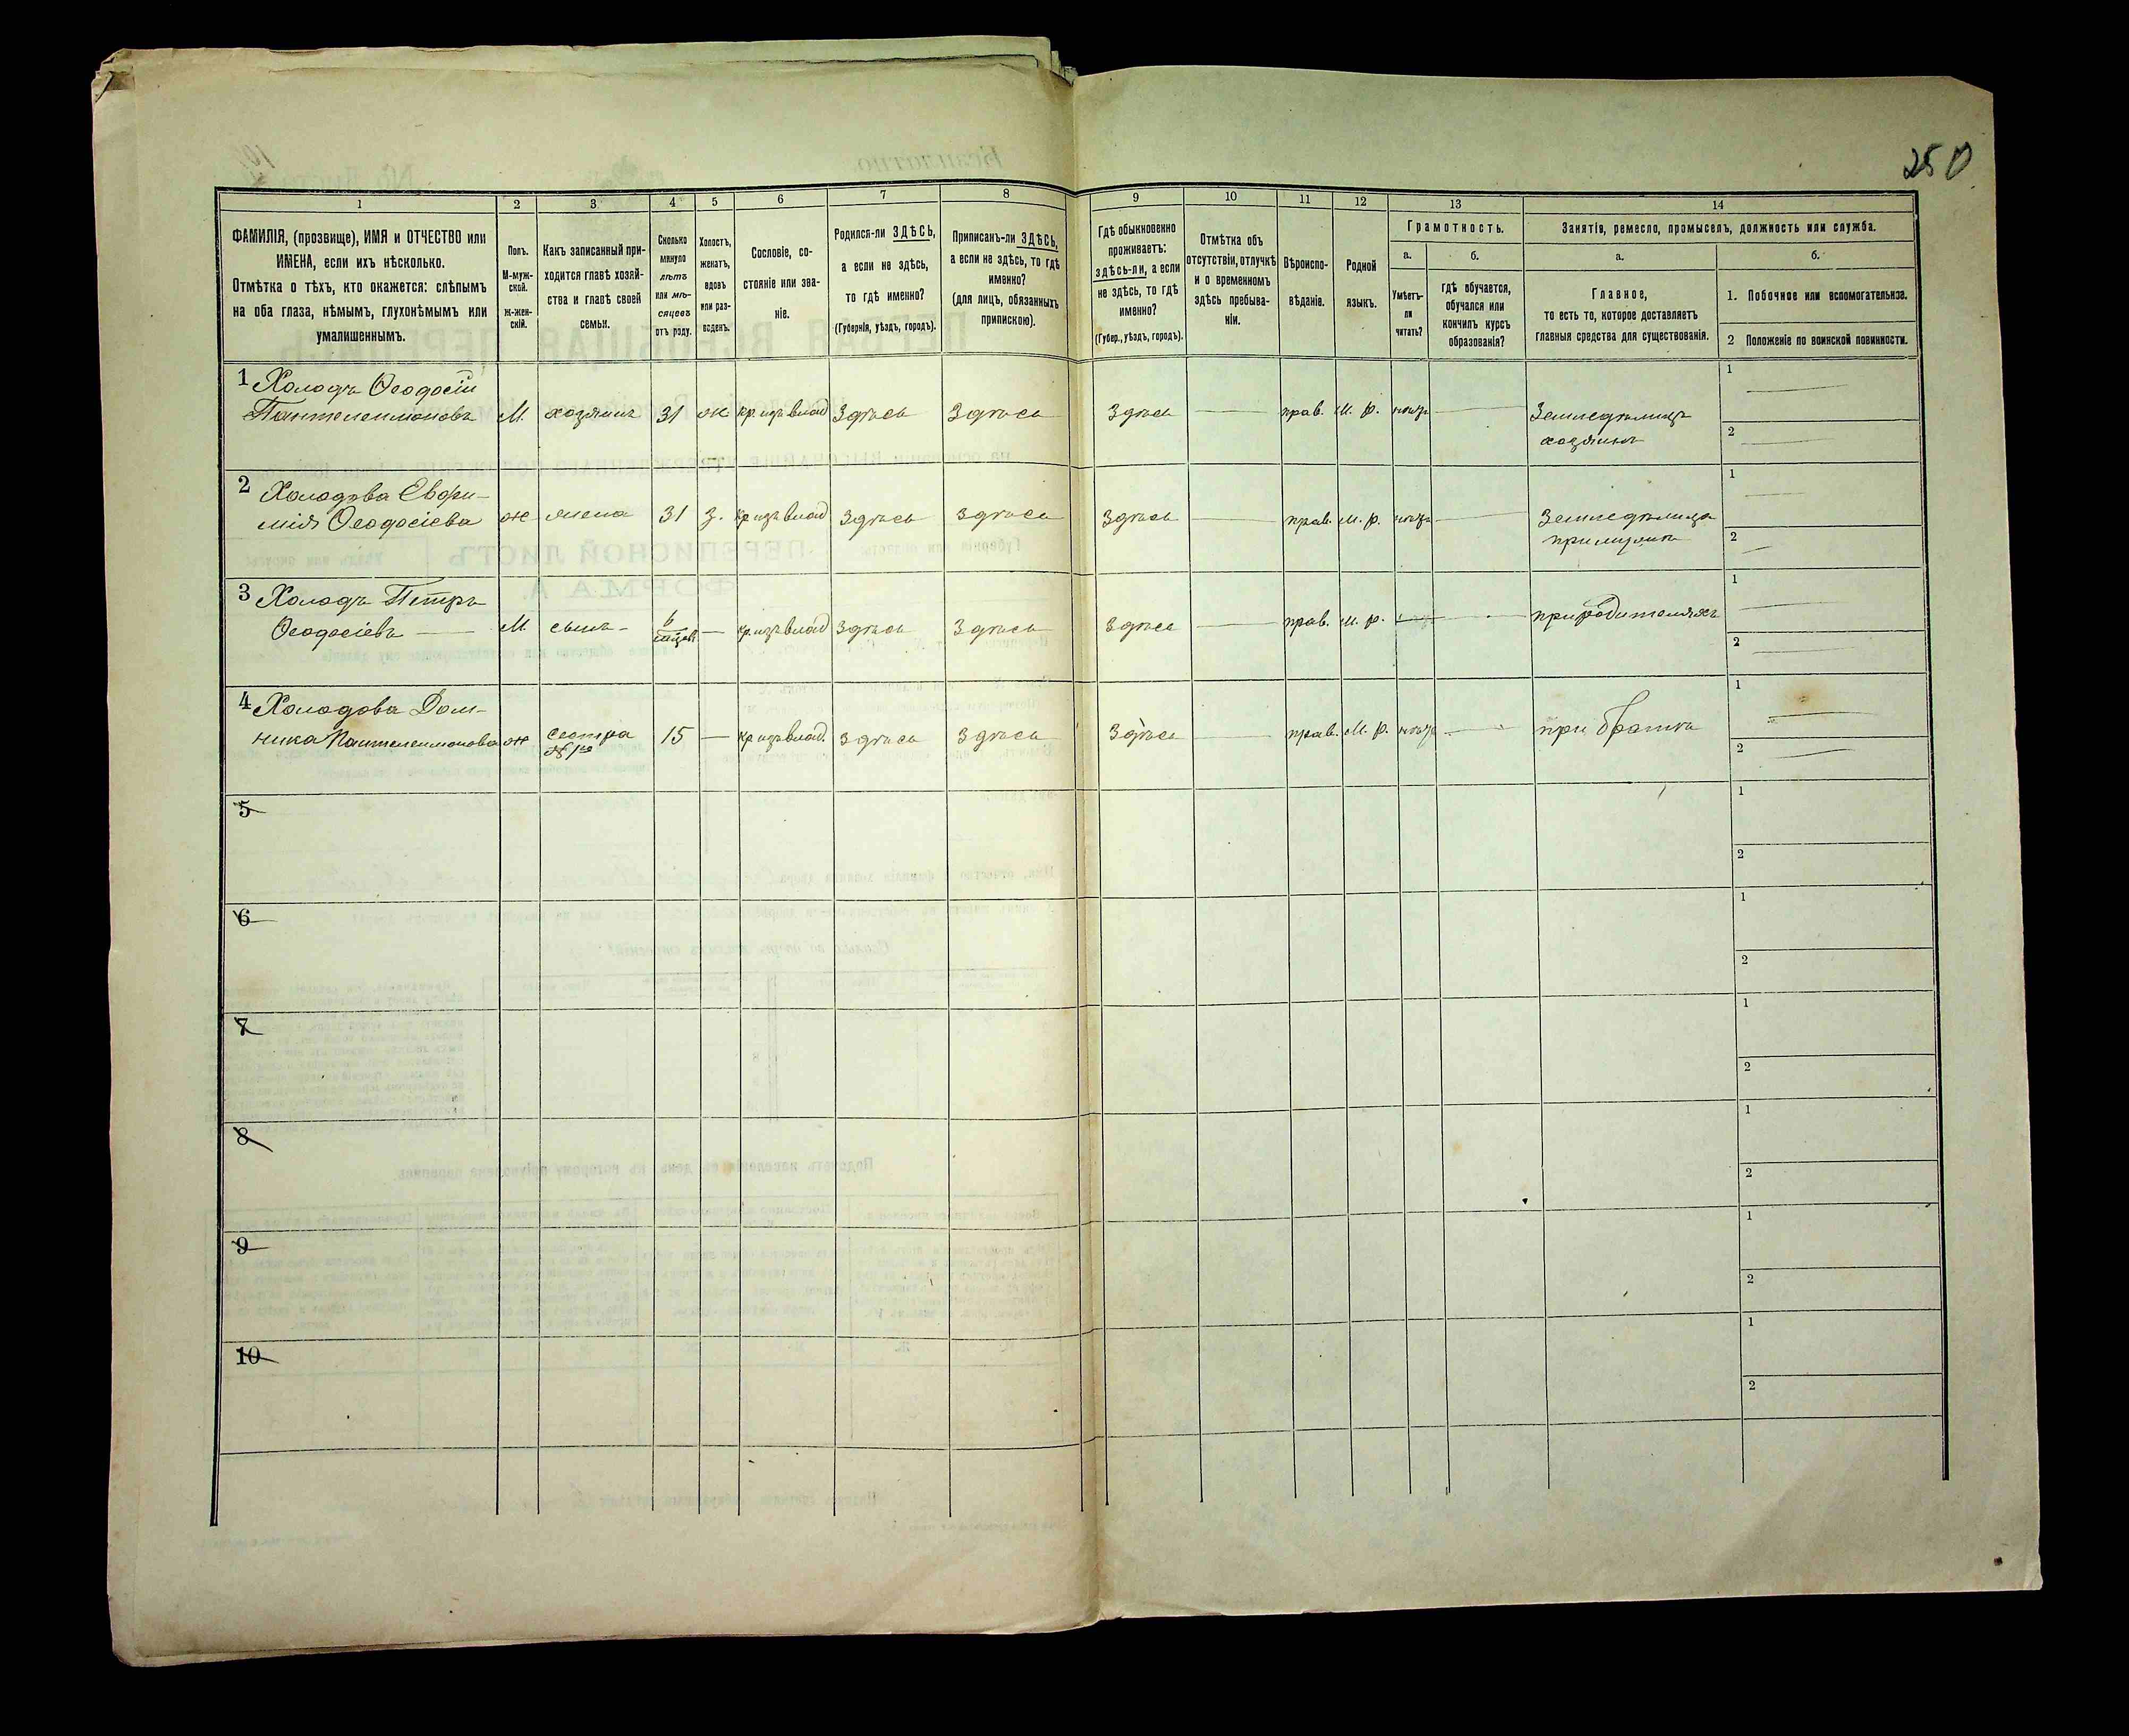 250
1 2 3 4 5 6 7 8 9 10 11 12 13 14
ФАМИЛІЯ, (прозвище), ИМЯ и ОТЧЕСТВО или
ИМЕНА, если ихъ нѣсколько.
Отмѣтка о тѣхъ, кто окажется: слѣпымъ
на оба глаза, нѣмымъ, глухонѣмымъ или
умалишеннымъ.
Полъ.
М-муж-
ской.
Ж-жен-
скій.
Какъ записанный при-
ходится главѣ хозяй-
ства и главѣ своей
семьи.
Сколько
минуло
лѣтъ
или мѣ-
сяцевъ
отъ роду.
Холостъ,
женатъ,
вдовъ
или раз-
веденъ.
Сословіе, со-
стояніе или зва-
ніе.
Родился-ли ЗДѢСЬ,
а если не здѣсь,
то гдѣ именно?
(Губернія, уѣздъ, городъ).
Приписанъ-ли ЗДѢСЬ,
а если не здѣсь, то гдѣ
именно?
(для лицъ, обязанныхъ
припискою).
Гдѣ обыкновенно
проживаетъ:
здѣсь-ли, а если
не здѣсь, то гдѣ
именно?
(Губер., уѣздъ, городъ).
Отмѣтка объ
отсутствіи, отлучкѣ
и о временномъ
здѣсь пребыва-
ніи.
Вѣроиспо-
вѣданіе.
Родной
языкъ.
Грамотность.
а.
Умѣетъ-
ли
читать?
б.
гдѣ обучается,
обучался или
кончилъ курсъ
образованія?
Занятія, ремесло, промыселъ, должность или служба.
а.
Главное,
то есть то, которое доставляетъ
главныя средства для существованія.
б.
1. Побочное или вспомогательное.
2 Положеніе по воинской повинности.
1 Холодъ Ѳеодосій
Пантелеимоновъ М. хозяинъ 31 ж кр. изъ влад Здѣсь Здѣсь Здѣсь — прав. М. р. нѣтъ — Земледѣлецъ
хозяинъ
1 —
2 —
2 Холодова Евфи-
мія Ѳеодосіева ж жена 31 з. кр. изъ влад Здѣсь Здѣсь Здѣсь — прав. М. р. нѣтъ — Земледѣлица
1 —
2 —
3 Холодъ Петръ
Ѳеодосіевъ — М. сынъ — 6 — кр. изъ влад Здѣсь Здѣсь Здѣсь — прав. М. р. — — при родителяхъ
1 —
2 —
4 Холодова Дом-
ника Пантелеимонова ж сестра 15 — кр. изъ влад. Здѣсь Здѣсь Здѣсь — прав. М. р. нѣтъ — при братѣ
№ 1го
1 —
2 —
5
1
2
6
1
2
7
1
2
8
1
2
9
1
2
10
1
2